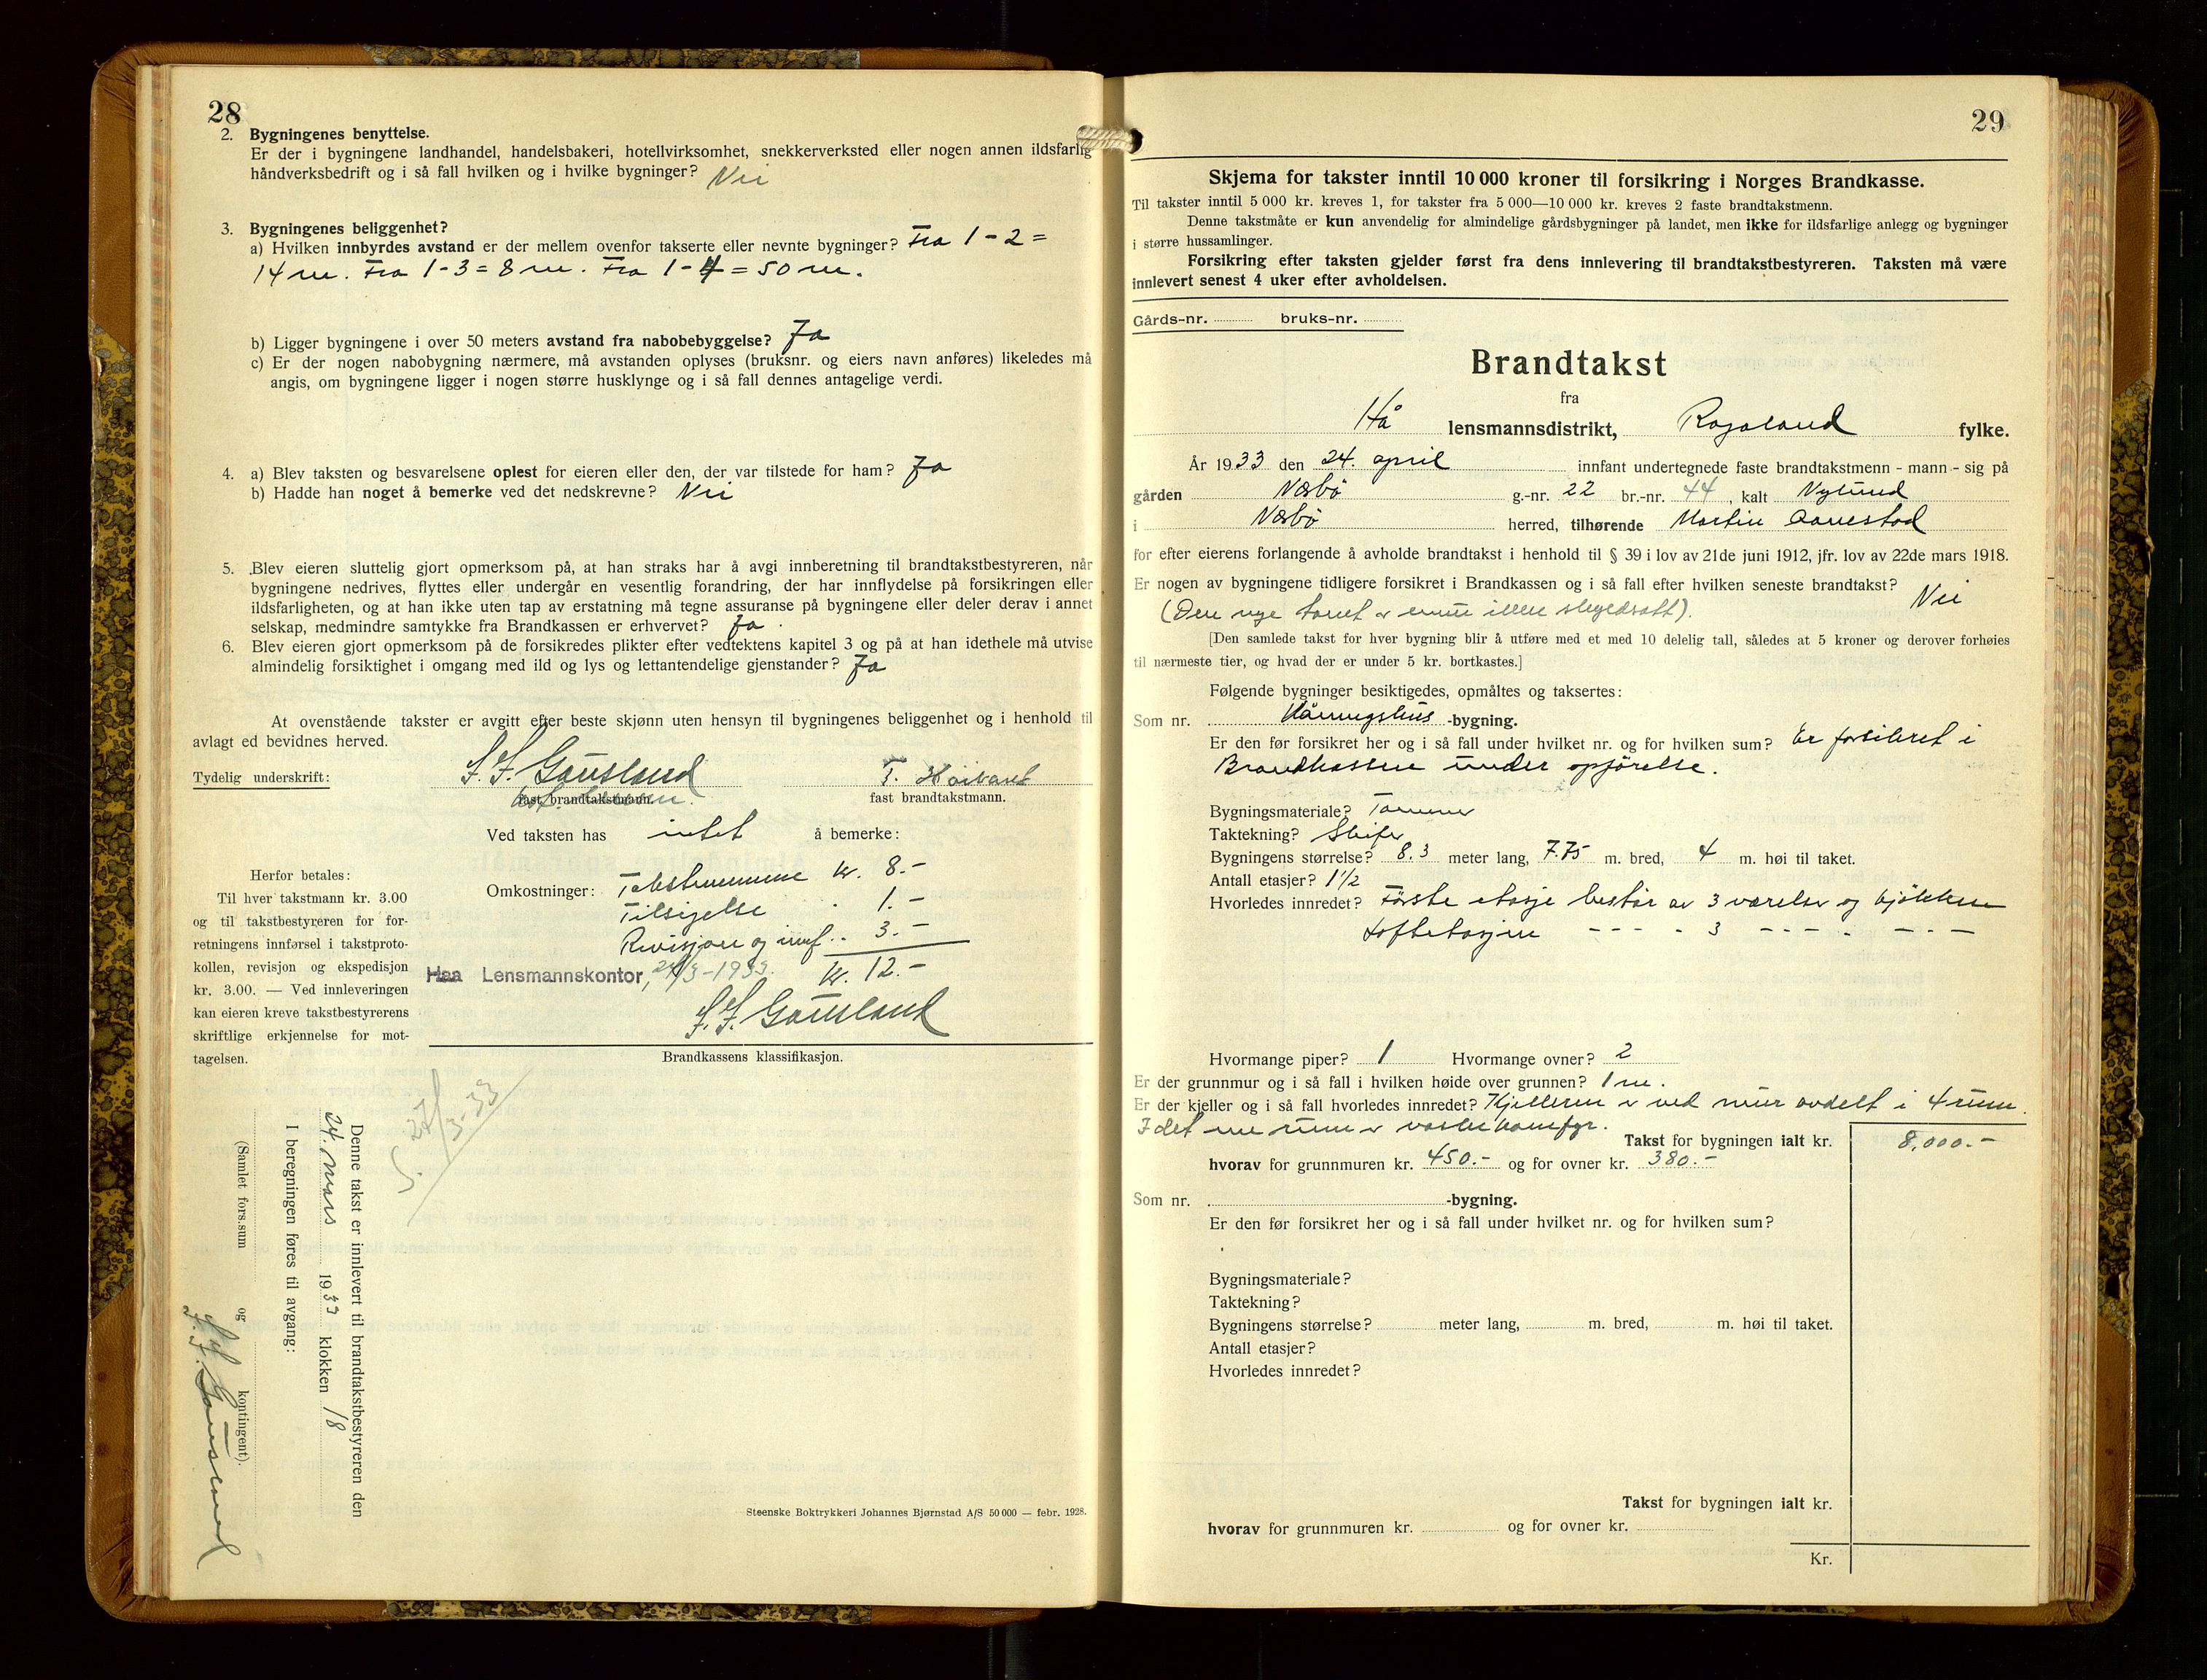 28
2. Bygningenes benyttelse.
Er der i bygningene landhandel, handelsbakeri, hotellvirksomhet, snekkerverksted eller nogen annen ildsfarlig
håndverksbedrift og i så fall hvilken og i hvilke bygninger? Nei
3. Bygningenes beliggenhet?
a) Hvilken innbyrdes avstand er der mellem ovenfor takserte eller nevnte bygninger? Fra 1-2 =
14 m. Fra 1-3 = 8 m. Fra 1-4 = 50 m.
b) Ligger bygningene i over 50 meters avstand fra nabobebyggelse? Ja
c) Er der nogen nabobygning nærmere, må avstanden oplyses (bruksnr. og eiers navn anføres) likeledes må
angis, om bygningene ligger i nogen større husklynge og i så fall dennes antagelige verdi.
4. a) Blev taksten og besvarelsene oplest for eieren eller den, der var tilstede for ham? Ja
b) Hadde han noget å bemerke ved det nedskrevne? Nei
5. Blev eieren sluttelig gjort opmerksom på, at han straks har å avgi innberetning til brandtakstbestyreren, når
bygningene nedrives, flyttes eller undergår en vesentlig forandring, der har innflydelse på forsikringen eller
ildsfarligheten, og at han ikke uten tap av erstatning må tegne assuranse på bygningene eller deler derav i annet
selskap, medmindre samtykke fra Brandkassen er erhvervet? Ja.
6. Blev eieren gjort opmerksom på de forsikredes plikter efter vedtektens kapitel 3 og på at han idethele må utvise
almindelig forsiktighet i omgang med ild og lys og lettantendelige gjenstander? Ja
At ovenstående takster er avgitt efter beste skjønn uten hensyn til bygningenes beliggenhet og i henhold til
avlagt ed bevidnes herved.
Tydelig underskrift: S. F. Gausland T.
fast brandtakstmann. fast brandtakstmann.
Ved taksten has intet å bemerke:
Omkostninger: Takstmennene kr. 8.-
Tilsigelse " 1.-
Revisjon og innf. " 3.-
Haa Lensmannskontor, 24/3-1933. kr. 12.-
S. F. Gausland
Herfor betales:
Til hver takstmann kr. 3.00
og til takstbestyreren for for-
retningens innførsel i takstproto-
kollen, revisjon og ekspedisjon
kr. 3.00. — Ved innleveringen
kan eieren kreve takstbestyrerens
skriftlige erkjennelse for mot-
tagelsen.
Brandkassens klassifikasjon.
S. 27/3-33
Denne takst er innlevert til brandtakstbestyreren den
24. mars 1933 klokken 18
I beregningen føres til avgang:
(Samlet fors.sum og kontingent).
S. F. Gausland
Steenske Boktrykkeri Johannes Bjørnstad A/S 50 000 — febr. 1928.
29
Skjema for takster inntil 10 000 kroner til forsikring i Norges Brandkasse.
Til takster inntil 5 000 kr. kreves 1, for takster fra 5 000—10 000 kr. kreves 2 faste brandtakstmenn.
Denne takstmåte er kun anvendelig for almindelige gårdsbygninger på landet, men ikke for ildsfarlige anlegg og bygninger
i større hussamlinger.
Forsikring efter taksten gjelder først fra dens innlevering til brandtakstbestyreren. Taksten må være
innlevert senest 4 uker efter avholdelsen.
Gårds-nr. bruks-nr.
Brandtakst
fra
Hå lensmannsdistrikt, Rogaland fylke.
År 1933 den 24. april innfant undertegnede faste brandtakstmenn - mann - sig på
gården Nærbö g.-nr. 22 br.-nr. 44, kalt Nylund
i Nærbö herred, tilhørende Martin Aanestad
for efter eierens forlangende å avholde brandtakst i henhold til § 39 i lov av 21de juni 1912, jfr. lov av 22de mars 1918.
Er nogen av bygningene tidligere forsikret i Brandkassen og i så fall efter hvilken seneste brandtakst? Nei
(Den nye tomt er ennu ikke skyldsatt).
[Den samlede takst for hver bygning blir å utføre med et med 10 delelig tall, således at 5 kroner og derover forhøies
til nærmeste tier, og hvad der er under 5 kr. bortkastes.]
Følgende bygninger besiktigedes, opmåltes og taksertes:
Som nr. Våningshus -bygning.
Er den før forsikret her og i så fall under hvilket nr. og for hvilken sum? Er forsikret i
Brandkassen under opförelse.
Bygningsmateriale? Tømmer
Taktekning? Skifer
Bygningens størrelse? 8.3 meter lang, 7.75 m. bred, 4 m. høi til taket.
Antall etasjer? 1½
Hvorledes innredet? Förste etasje består av 3 værelser og kjökken
Loftetasjen - - - - 3 - - - - - - -
Hvormange piper? 1 Hvormange ovner? 2
Er der grunnmur og i så fall i hvilken høide over grunnen? 1 m.
Er der kjeller og i så fall hvorledes innredet? Kjelleren er ved mur avdelt i 4 rum.
I det ene rum er vaskekomfyr.
Takst for bygningen ialt kr. 8,000.-
hvorav for grunnmuren kr. 450.- og for ovner kr. 380.-
Som nr. -bygning.
Er den før forsikret her og i så fall under hvilket nr. og for hvilken sum?
Bygningsmateriale?
Taktekning?
Bygningens størrelse? meter lang, m. bred, m. høi til taket.
Antall etasjer?
Hvorledes innredet?
Takst for bygningen ialt kr.
hvorav for grunnmuren kr. og for ovner kr.
Kr.